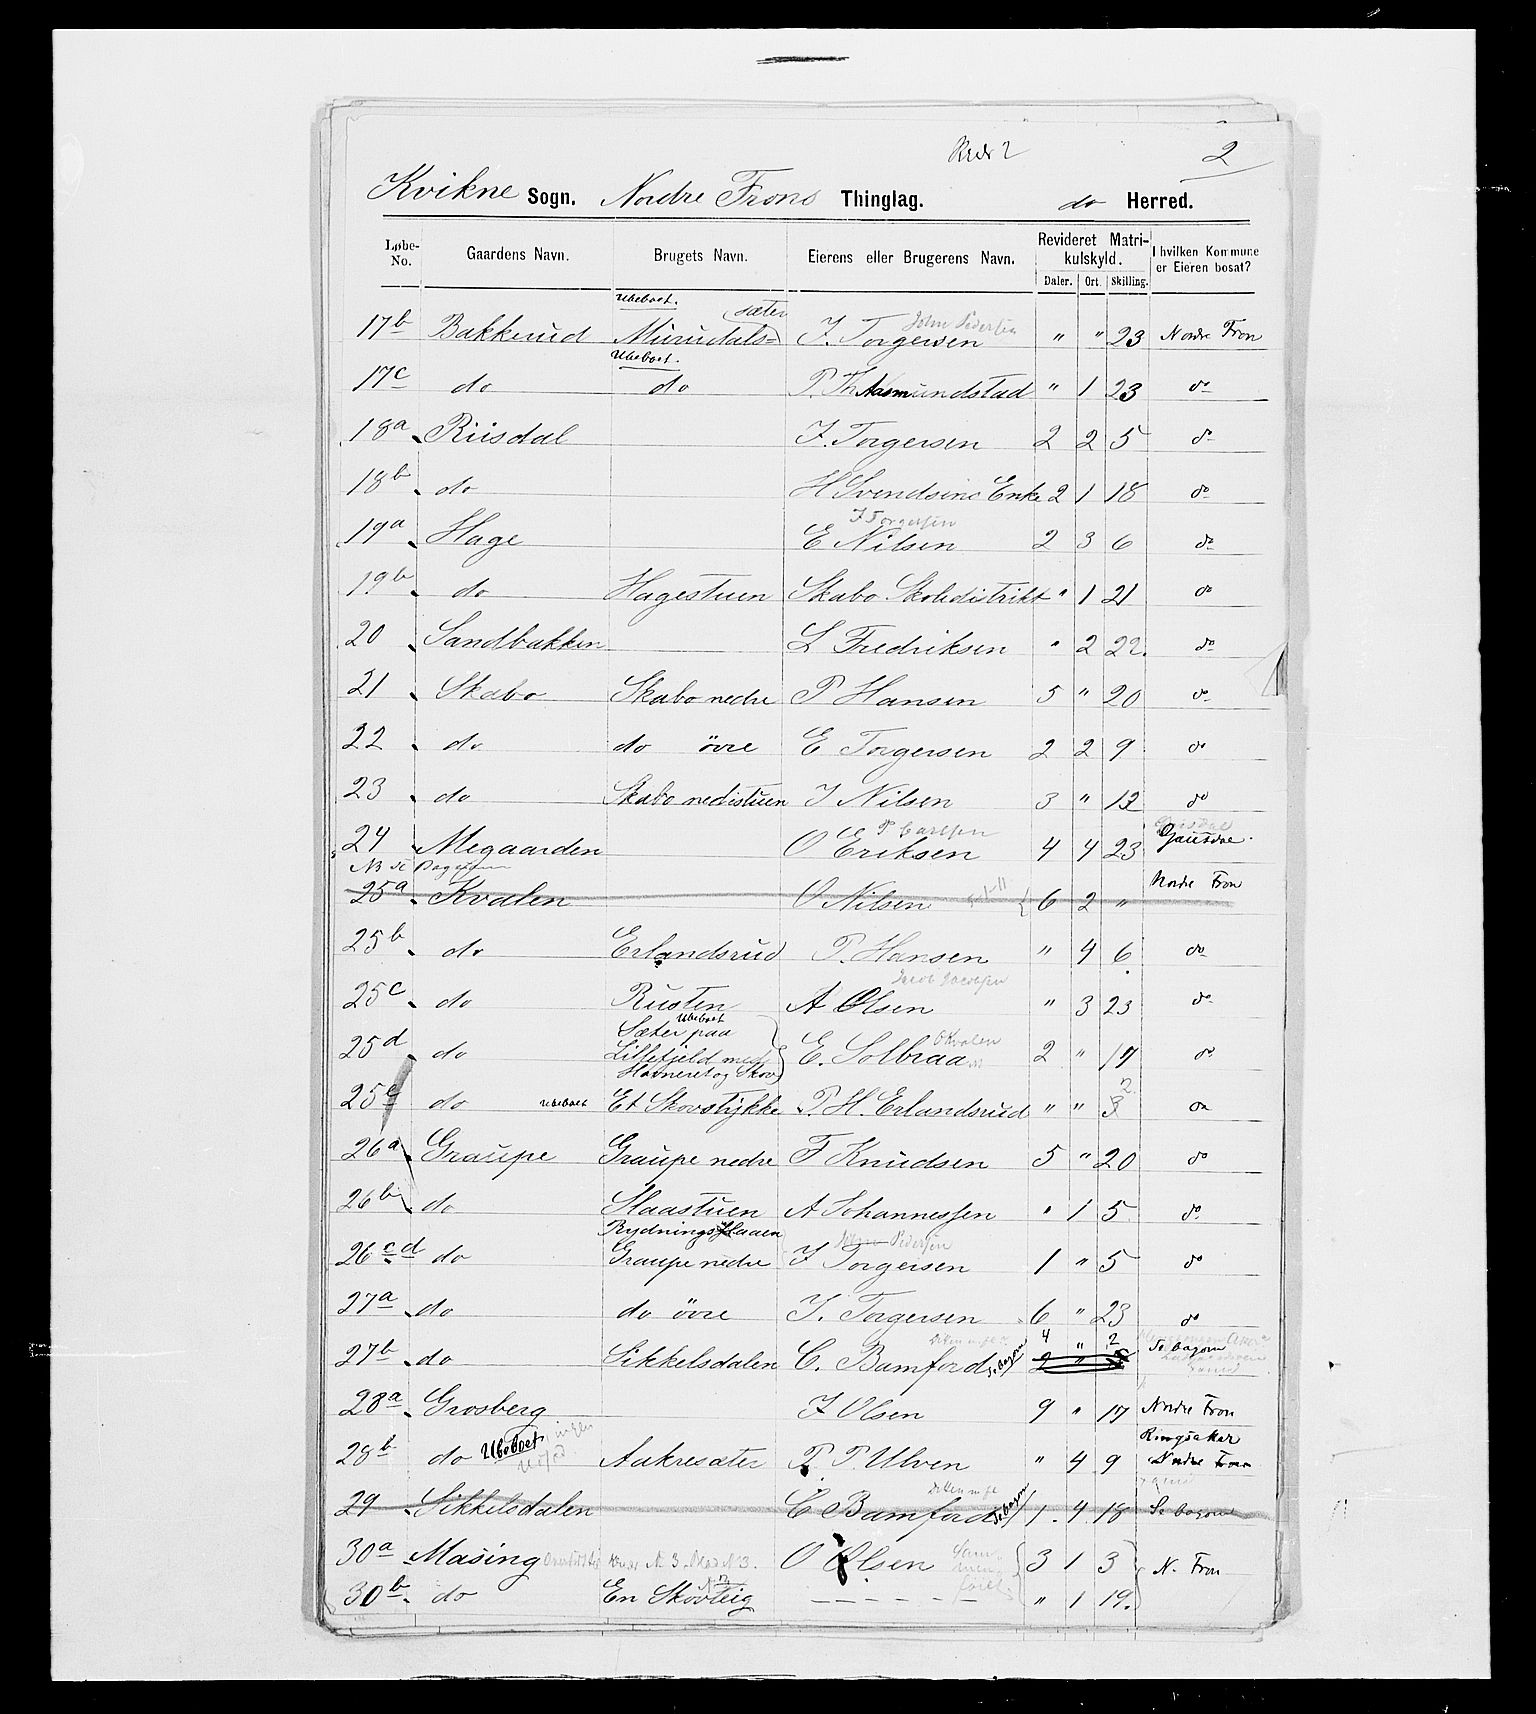 2
Kvikne Sogn. Nordre Frons Thinglag. do Herred.
Løbe-No. Gaardens Navn. Brugets Navn. Eierens eller Brugerens Navn. Revideret Matrikulskyld. Daler. Ort. Skilling. I hvilken Kommune er Eieren bosat?
Ubeboet. sæter John Pedersen
17b Bakkerud Murudals= J. Torgersen " " 23 Nordre Fron
Ubeboet.
17c do do P. Th Aasmundstad " 1 23 do
18a Riisdal J. Torgersen 2 2 5 do
18b do H Svendsens Enke 2 1 18 do
J Torgersen
19a Hage E Nilsen 2 3 6 do
19b do Hagestuen Skabo Skoledistrikt " 1 21 do
20 Sandbakken L Fredriksen " 2 22. do
21 Skabo Skabo nedre P Hansen 5 " 20 do
22 do do övre E Torgersen 2 2 9 do
23 do Skabo nedistuen J Nilsen 3 " 12 do
24 Megaarden O Eriksen 4 4 23 Gausdal
25a Kvalen O Nilsen 6 2 " Nordre Fron
25b do Erlandsrud P. Hansen " 4 6 do
Jacob Jacobsen
25c do Rusten A Olsen " 3 23 do
Ubeboet
Sæter paa
25d do Lillefjeld med E. Solbraa O Kvalen 2 " 17 do
Havneret og Skov
25e do Ubeboet Et Skovstykke P. H. Erlandsrud " " 3 2 do
26a Graupe Graupe nedre F Knudsen 5 " 20 do
26b do Slaastuen A Johannessen " 1 5 do
Rydnings Slaaen John Pedersen
26cd do Graupe nedre J Torgersen 1 " 5 do
27a do do övre J. Torgersen 6 " 23 do
4 " 2
27b do Sikkelsdalen C. Bamford Se bagom 2 " Se bagom
28a Grosberg J Olsen 9 " 17 Nordre Fron
Ringsaker
28b do Ubeboet Aakresæter P. P. Ulven " 4 9 Nordre Fron
29 Sikkelsdalen C Bamford Se bagom 1 4 18 Se bagom
30a Masing O Olsen 3 1 3 N. Fron
30b do En Skovteig – – – – – – " 1 19.